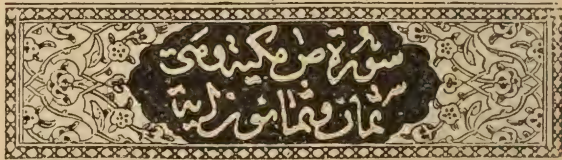 سورة ص مكية وهي
ثمان وثمانون آية